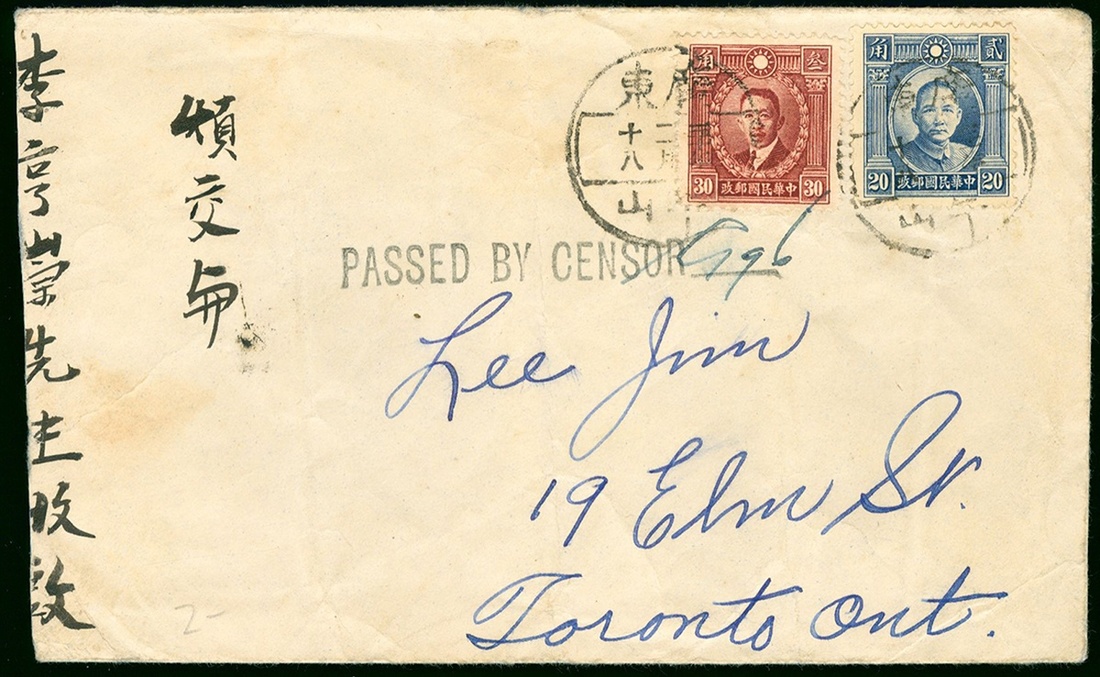 叁角
30 中華民國郵政 30
貳角
20 中華民國郵政 20
廣東
二月
十八
山
PASSED BY CENSOR
Lee Jim
19 Elm St.
Toronto Ont.
煩交
李亨崇先生收啟
2-